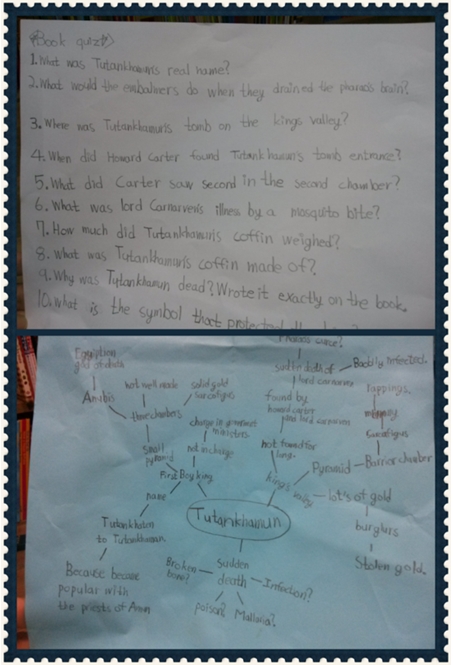 Book quiz
1. What was Tutankhamun's real name?
2. What would the embalmers do when they drained the pharao's brain?
3. Where was Tutankhamun's tomb on the kings valley?
4. When did Howard Carter found Tutankhamun's tomb entrance?
5. What did Carter saw second in the second chamber?
6. What was lord Carnarven's illness by a mosquito bite?
7. How much did Tutankhamun's coffin weighed?
8. What was Tutankhamun's coffin made of?
9. Why was Tutankhamun dead? Wrote it exactly on the book.
10. What is the symbol that protected
Egyptian
god of death
Anubis
not well made
solid gold
three chambers
small
pyramid
change in government
ministers
not in charge
First Boy king
name
Tutankhaten
to Tutankhamun
Because became
popular with
the priests of Amun
Tutankhamun
Sudden
death
Broken
bone?
Infection?
poison?
Malaria?
curse?
sudden death of
lord carnarven
Baddly infected.
found by
howard carter
and lord carnarven
not found for
long.
king's valley
Pyramid
Barrior chamber
Sarcofigus
mummy
Trappings.
lot's of gold
burglurs
Stolen gold.